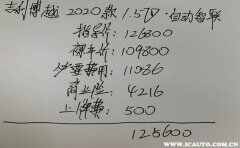 吉利博越 2020款 1.5TD·自动智联
指导价: 126800
裸车价: 109800
必要费用: 11086
商业险: 4216
上牌费: 500
125600
WWW.JCAUTO.COM.CN